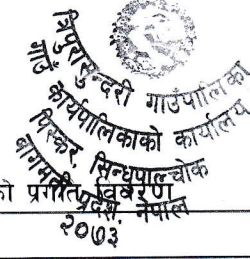 त्रिपुरासुन्दरी गाउँपालिका
गाउँ कार्यपालिकाको कार्यालय
पिस्कर, सिन्धुपाल्चोक
बागमती प्रदेश, नेपाल
२०७३
को प्रगति विवरण